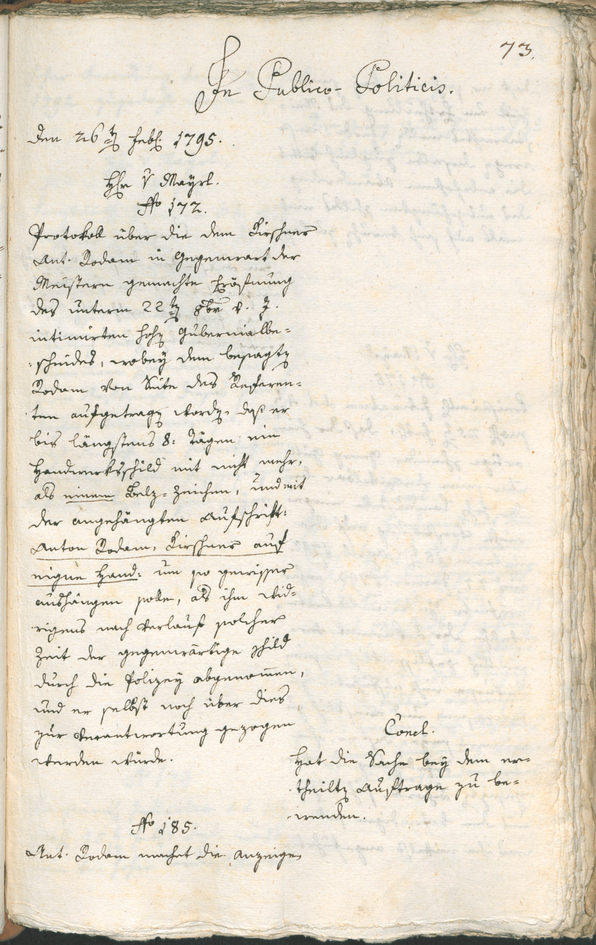 73.
In Publico-Politicis.
den 26tn Febr 1795.
Hr v Mayrl.
No 172.
Protokoll über die dem Kirschner
Ant. Rodam in Gegenwart der
Meistern gemachte Eröfnung
des unterm 22tn 8br v. J.
intimirten hohn Gubernialbe-
scheides, wobey dem besagtn
Rodam von Seite des Referen-
ten aufgetragn wordn, daß er
bis längstens 8: Tägen ein
Handwerksschild mit nicht mehr,
als einem Belz-Zeichen, und mit
der angehängten Aufschrift:
Anton Rodam, Kirschner auf
eigne Hand: um so gewisser
aushängen solle, als ihm wid-
rigens nach Verlauf solcher
Zeit der gegenwärtige Schild
durch die Polizey abgenomen,
und er selbst noch über dies
zur Verantwortung gezogen
werden würde.
Concl.
Hat die Sache bey dem er-
theiltn Auftrage zu be-
wenden.
No 185.
Ant. Rodam machet die Anzeige,